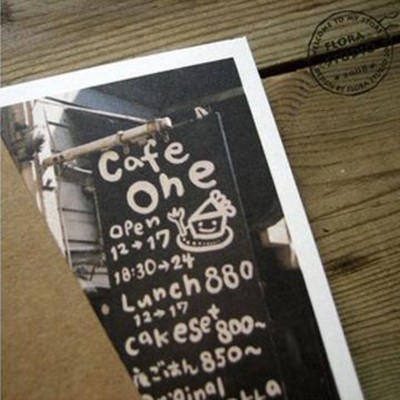 Cafe
One
open
12→17
18:30→24
Lunch 880
12→17
cakeset 800~
夜ごはん 850~
original
WELCOME TO MY STORE
FLORA
STUDIO
DESIGN BY FLORA STUDIO